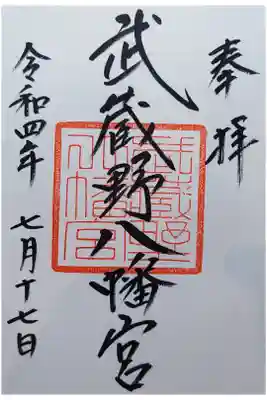 奉拝
武蔵野八幡宮
令和四年 七月十七日
武蔵野八幡宮